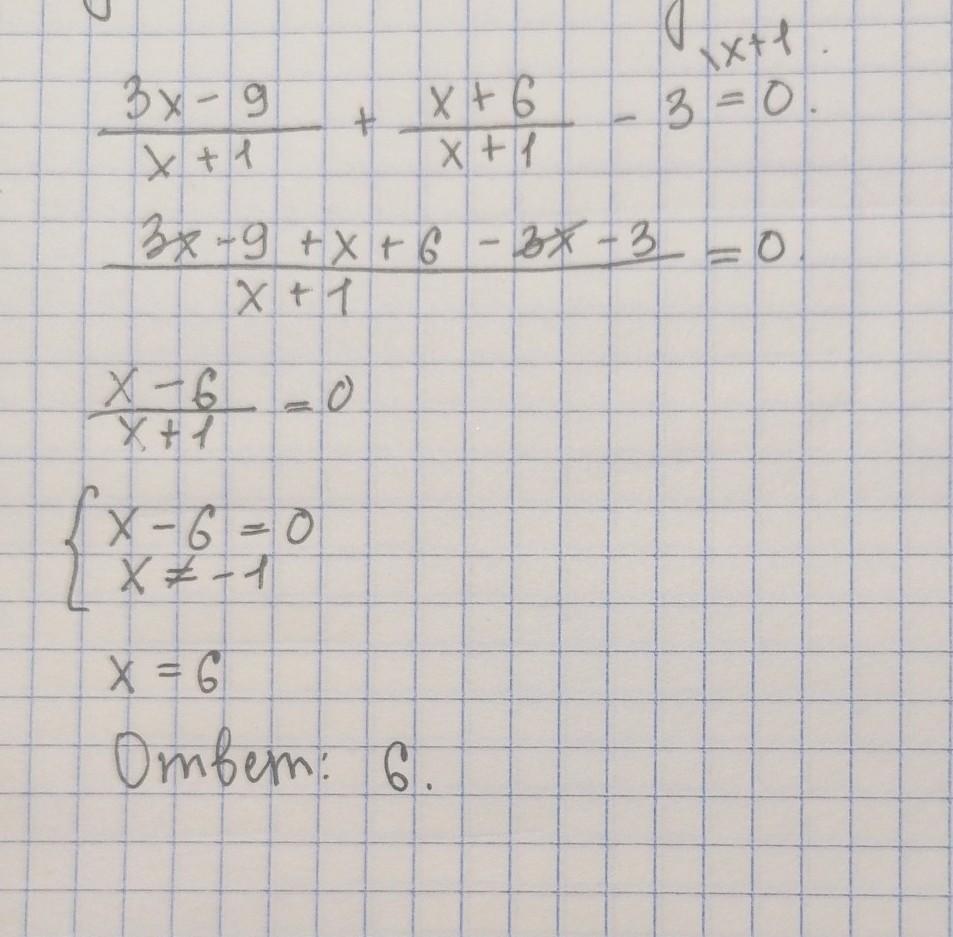 \x+1.
3x-9/x+1 + x+6/x+1 - 3 = 0.
3x-9+x+6-3x-3/x+1 = 0.
x-6/x+1 = 0
{x-6=0
x≠-1
x=6
Ответ: 6.